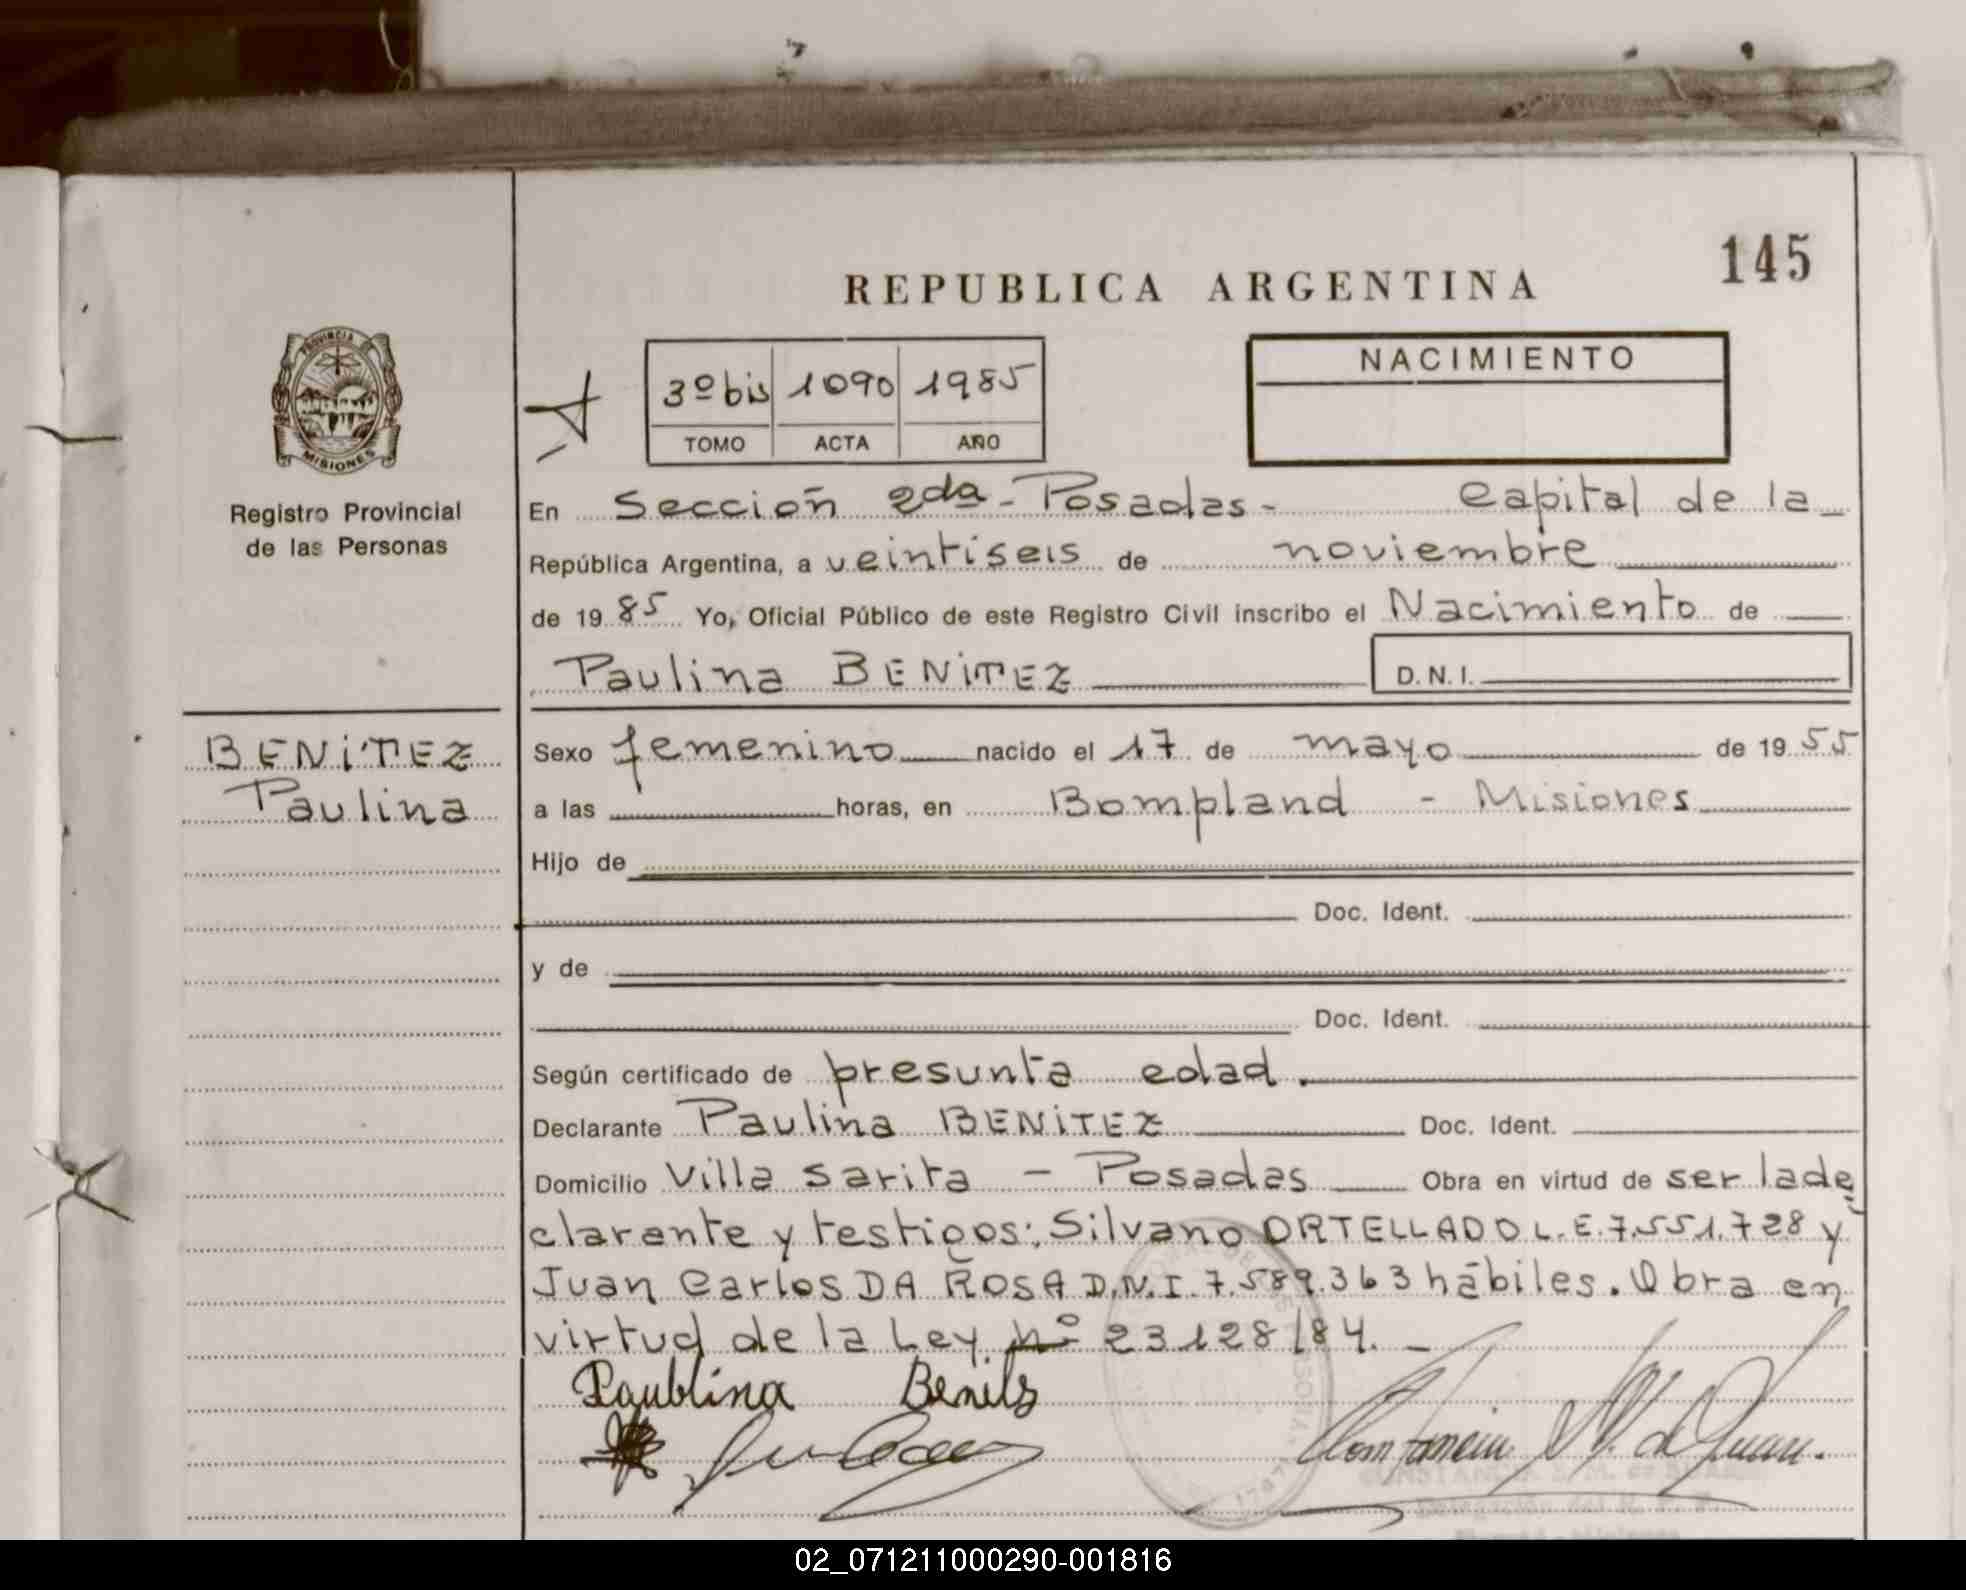 145
REPUBLICA ARGENTINA
PROVINCIA
MISIONES
Registro Provincial
de las Personas
3º bis 1090 1985
TOMO ACTA AÑO
NACIMIENTO
En Sección 2da - Posadas - Capital de la
República Argentina, a veintiseis de noviembre
de 1985 Yo, Oficial Público de este Registro Civil inscribo el Nacimiento de
Paulina BENITEZ D.N.I.
BENITEZ
Paulina
Sexo femenino nacido el 17 de mayo de 1955
a las horas, en Bompland - Misiones
Hijo de
Doc. Ident.
y de
Doc. Ident.
Según certificado de presunta edad.
Declarante Paulina BENITEZ Doc. Ident.
Domicilio Villa Sarita - Posadas Obra en virtud de ser la de
clarente y testigos: Silvano ORTELLADO L.E. 7.551.728 y
Juan Carlos DA ROSA D.N.I. 7.589.363 hábiles. Obra en
virtud de la Ley nº 23128/84.
Paublina Benils
02_071211000290-001816